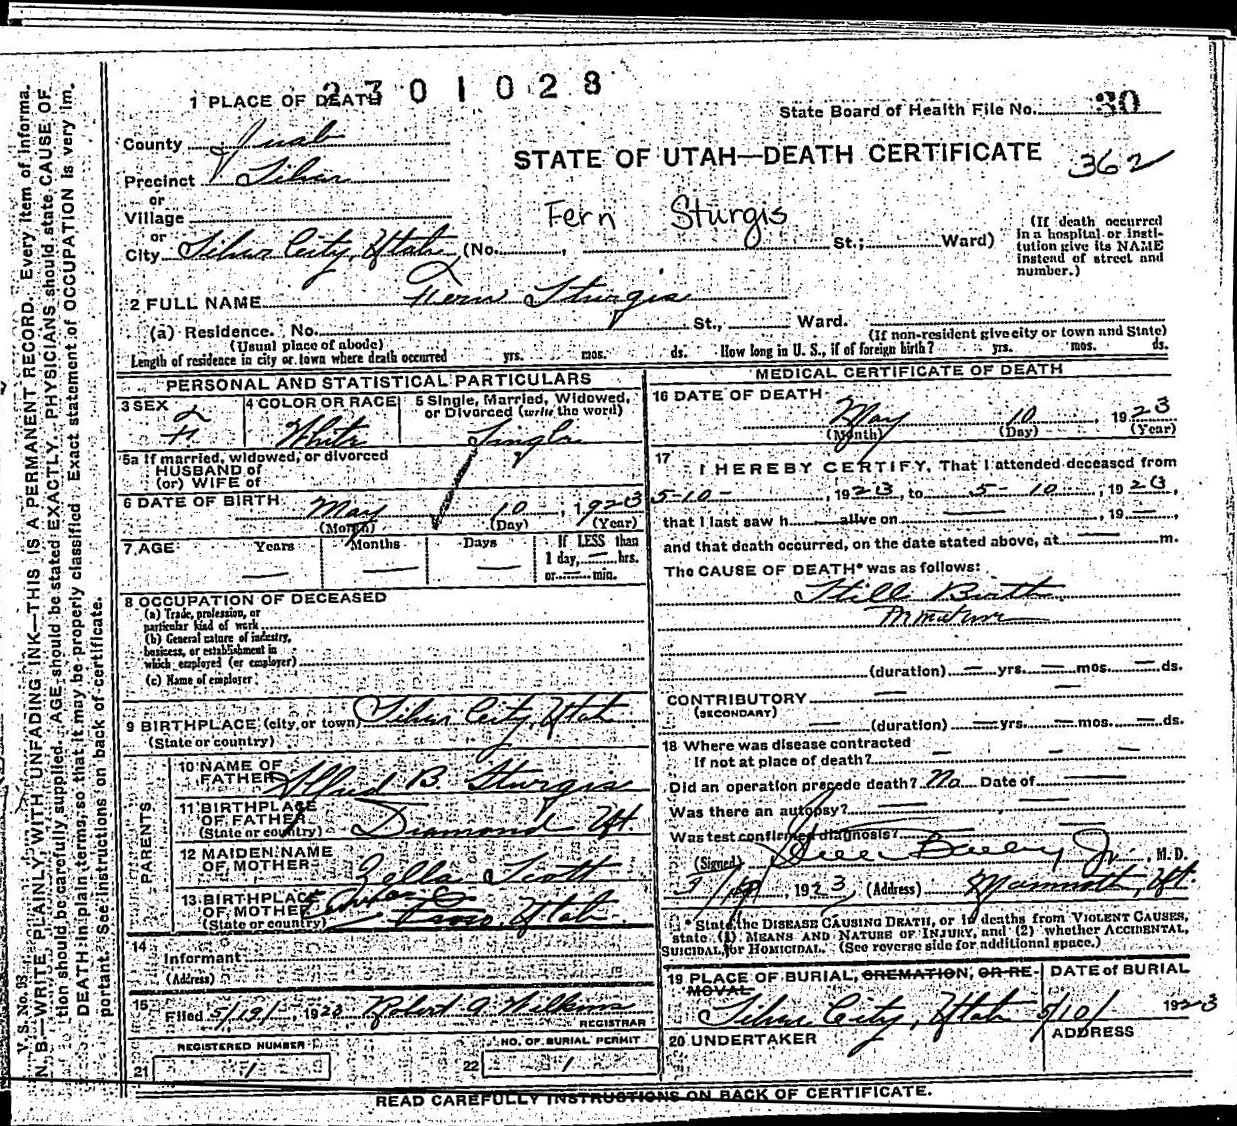 2301028
1 PLACE OF DEATH
State Board of Health File No. 30
County Juab
STATE OF UTAH—DEATH CERTIFICATE
362
Precinct Silver
or
Village
Fern Sturgis
or
City Silver City, Utah, (No. , St.; Ward)
(If death occurred
in a hospital or insti-
tution give its NAME
instead of street and
number.)
2 FULL NAME Fern Sturgis
(a) Residence. No. St., Ward.
(Usual place of abode)
(If non-resident give city or town and State)
Length of residence in city or town where death occurred yrs. mos. ds. How long in U. S., if of foreign birth? yrs. mos. ds.
PERSONAL AND STATISTICAL PARTICULARS
3 SEX
F
4 COLOR OR RACE
White
5 Single, Married, Widowed,
or Divorced (write the word)
Single
5a If married, widowed, or divorced
HUSBAND of
(or) WIFE of
6 DATE OF BIRTH May 10, 1923
(Month) (Day) (Year)
7 AGE Years Months Days
If LESS than
1 day, — hrs.
or — min.
8 OCCUPATION OF DECEASED
(a) Trade, profession, or
particular kind of work
(b) General nature of industry,
business, or establishment in
which employed (or employer)
(c) Name of employer
9 BIRTHPLACE (city, or town) Silver City, Utah
(State or country)
PARENTS
10 NAME OF
FATHER Alfred B. Sturgis
11 BIRTHPLACE
OF FATHER
(State or country) Diamond Ut.
12 MAIDEN NAME
OF MOTHER Zella Scott
13 BIRTHPLACE
OF MOTHER
(State or country) Provo, Utah
14
Informant
(Address)
15
Filed 5/19/ 1923 Robert A. Wilkins
REGISTRAR
REGISTERED NUMBER
21 1
NO. OF BURIAL PERMIT
22 1
MEDICAL CERTIFICATE OF DEATH
16 DATE OF DEATH
May 10, 1923
(Month) (Day) (Year)
17
I HEREBY CERTIFY, That I attended deceased from
5-10-, 1923, to 5-10-, 1923,
that I last saw h alive on —, 19—,
and that death occurred, on the date stated above, at — m.
The CAUSE OF DEATH* was as follows:
Still Birth
(duration) — yrs. — mos. — ds.
CONTRIBUTORY —
(SECONDARY)
— (duration) — yrs. — mos. — ds.
18 Where was disease contracted
If not at place of death?
Did an operation precede death? No Date of —
Was there an autopsy? —
Was test confirmed diagnosis? —
(Signed) Bailey Jr., M. D.
1923, (Address) Mammoth, Ut.
* State the DISEASE CAUSING DEATH, or in deaths from VIOLENT CAUSES,
state (1) MEANS AND NATURE OF INJURY, and (2) whether ACCIDENTAL,
SUICIDAL, or HOMICIDAL. (See reverse side for additional space.)
19 PLACE OF BURIAL, CREMATION, OR RE-
MOVAL
Silver City, Utah
DATE of BURIAL
5/10/ 1923
20 UNDERTAKER
ADDRESS
READ CAREFULLY INSTRUCTIONS ON BACK OF CERTIFICATE.
V. S. No. 95
N. B.—WRITE PLAINLY, WITH UNFADING INK—THIS IS A PERMANENT RECORD. Every item of informa-
tion should be carefully supplied. AGE should be stated EXACTLY. PHYSICIANS should state CAUSE OF
DEATH in plain terms, so that it may be properly classified. Exact statement of OCCUPATION is very im-
portant. See instructions on back of certificate.